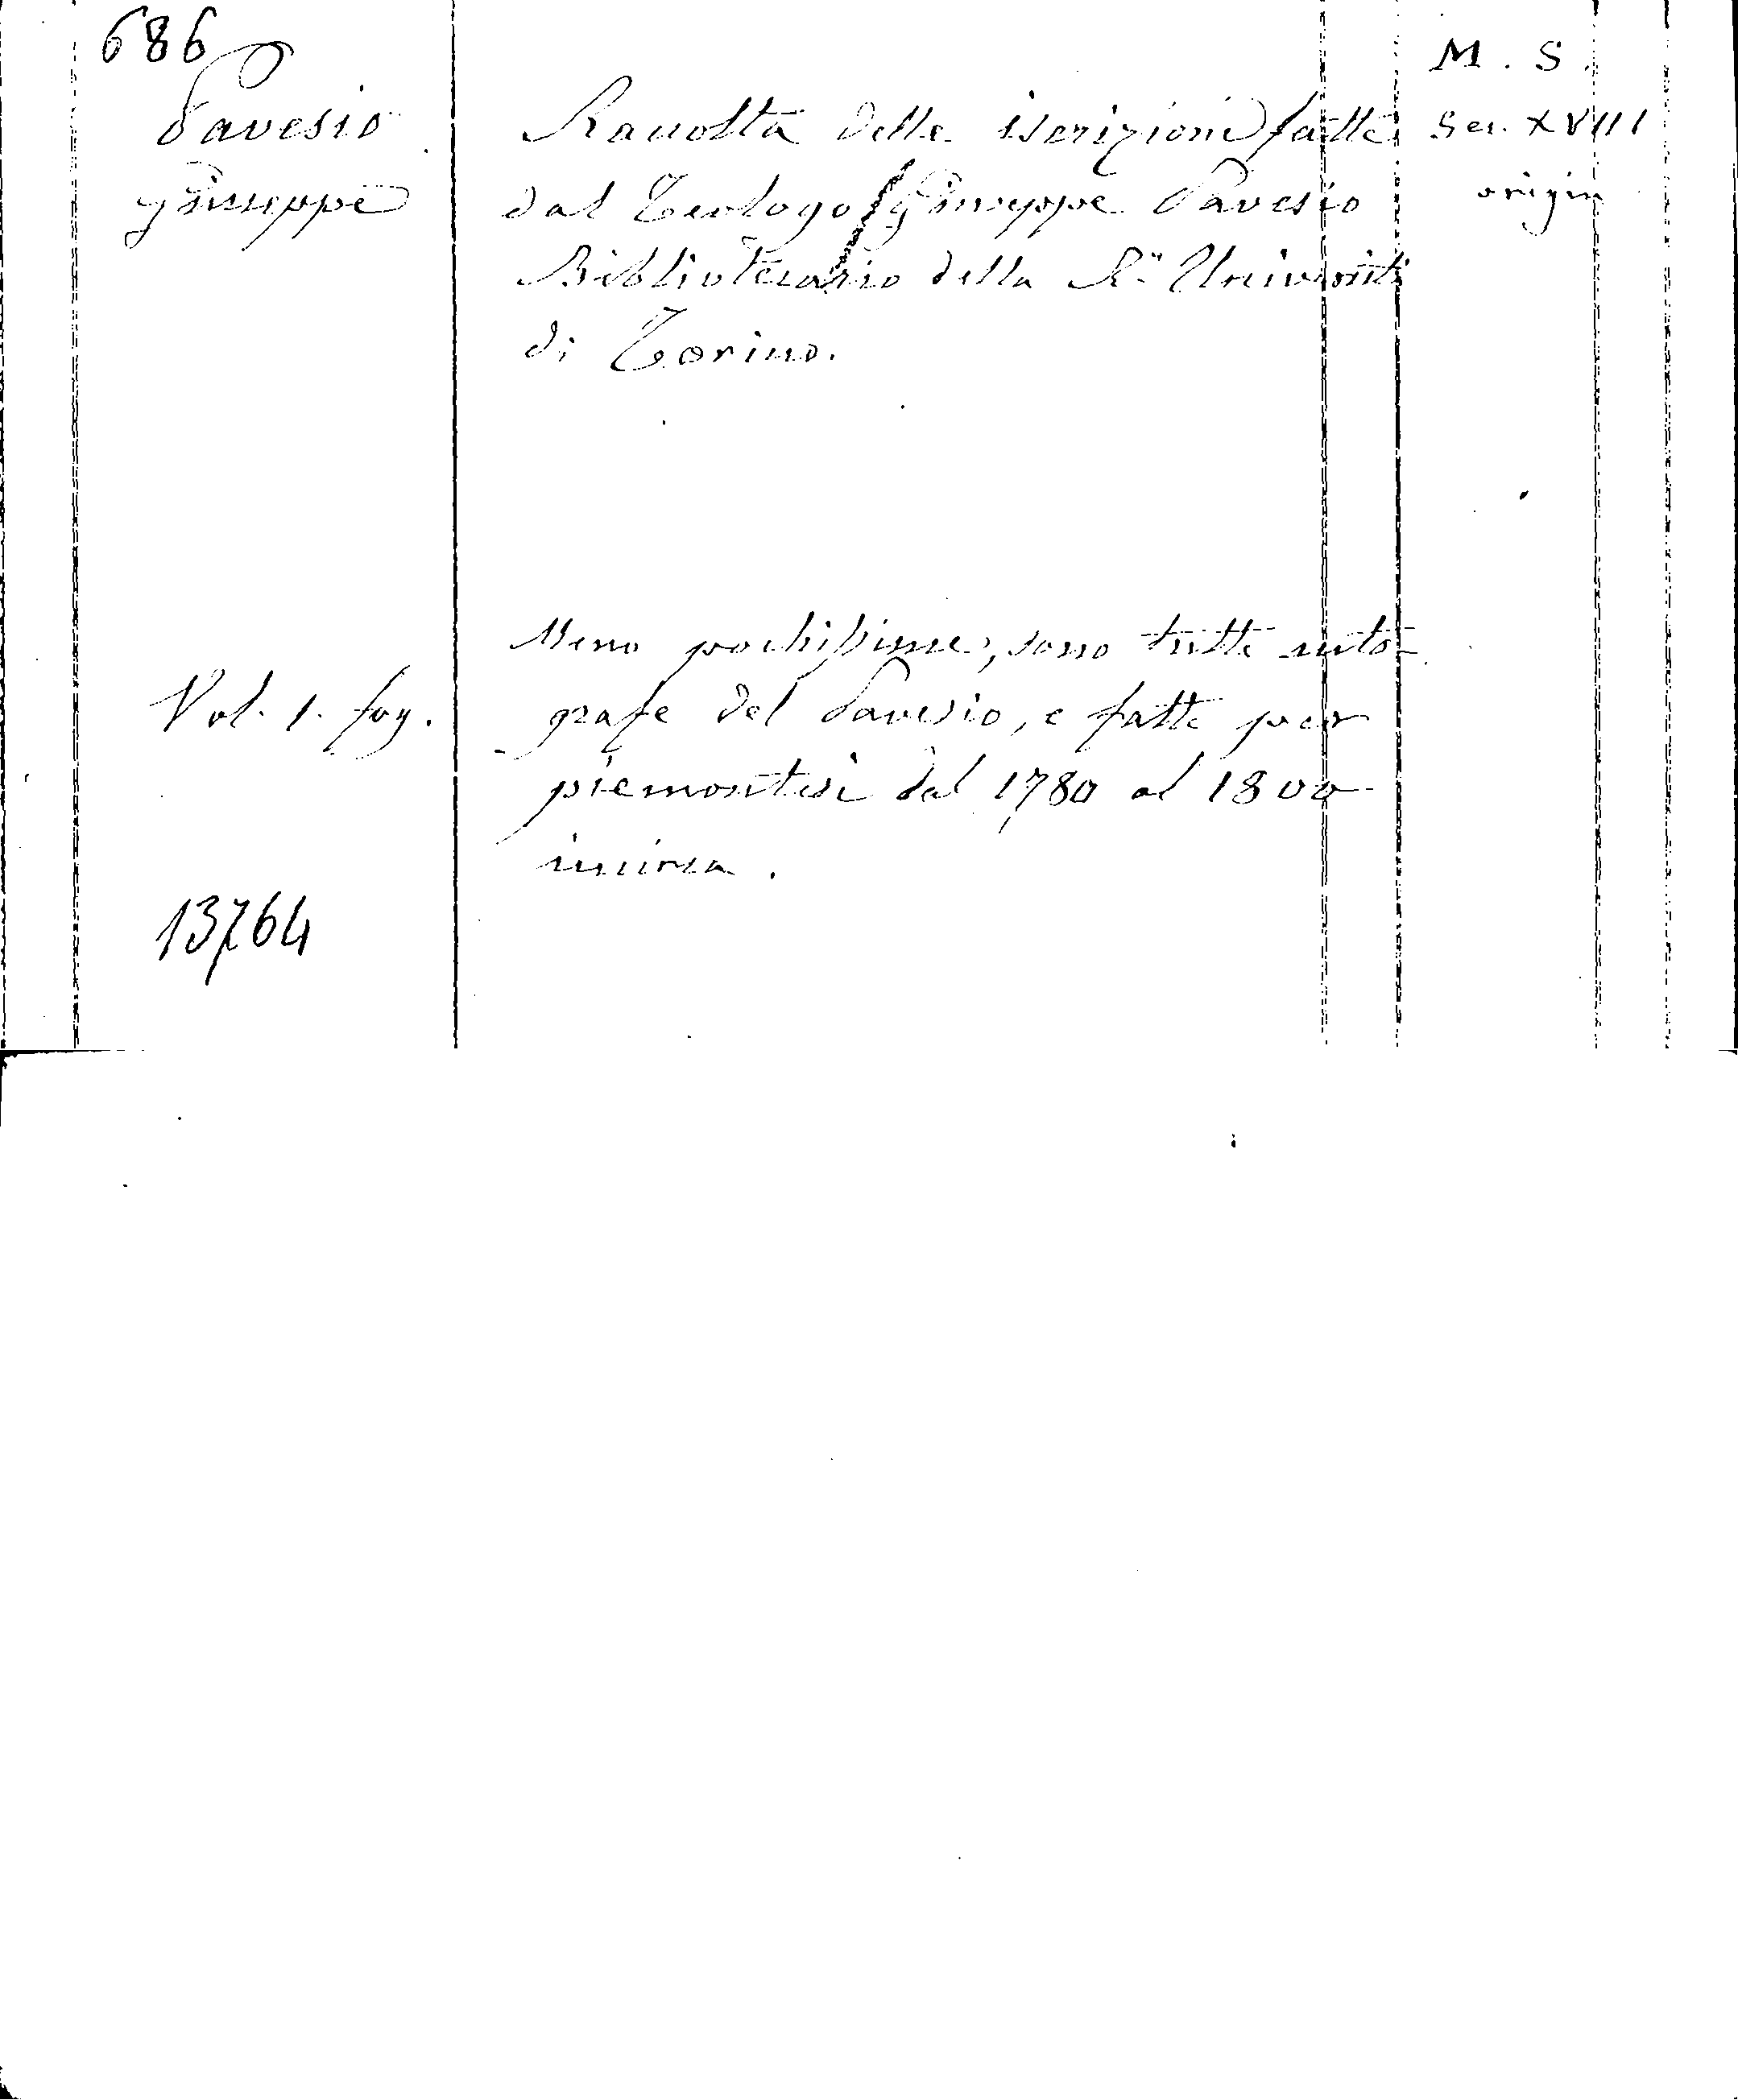 686
Pavesio
Giuseppe
Raccolta delle iscrizioni fatte
dal Teologo Giuseppe Pavesio
Bibliotecario della R.ª Università
di Torino.
M. S.
Sec. XVIII
origin
Meno pochissime, sono tutte auto-
grafe del Pavesio, e fatte per
piemontesi dal 1780 al 1800
incirca.
Vol. 1. fog.
13764